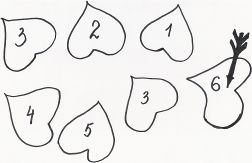 3 2 1
4 5 3 6